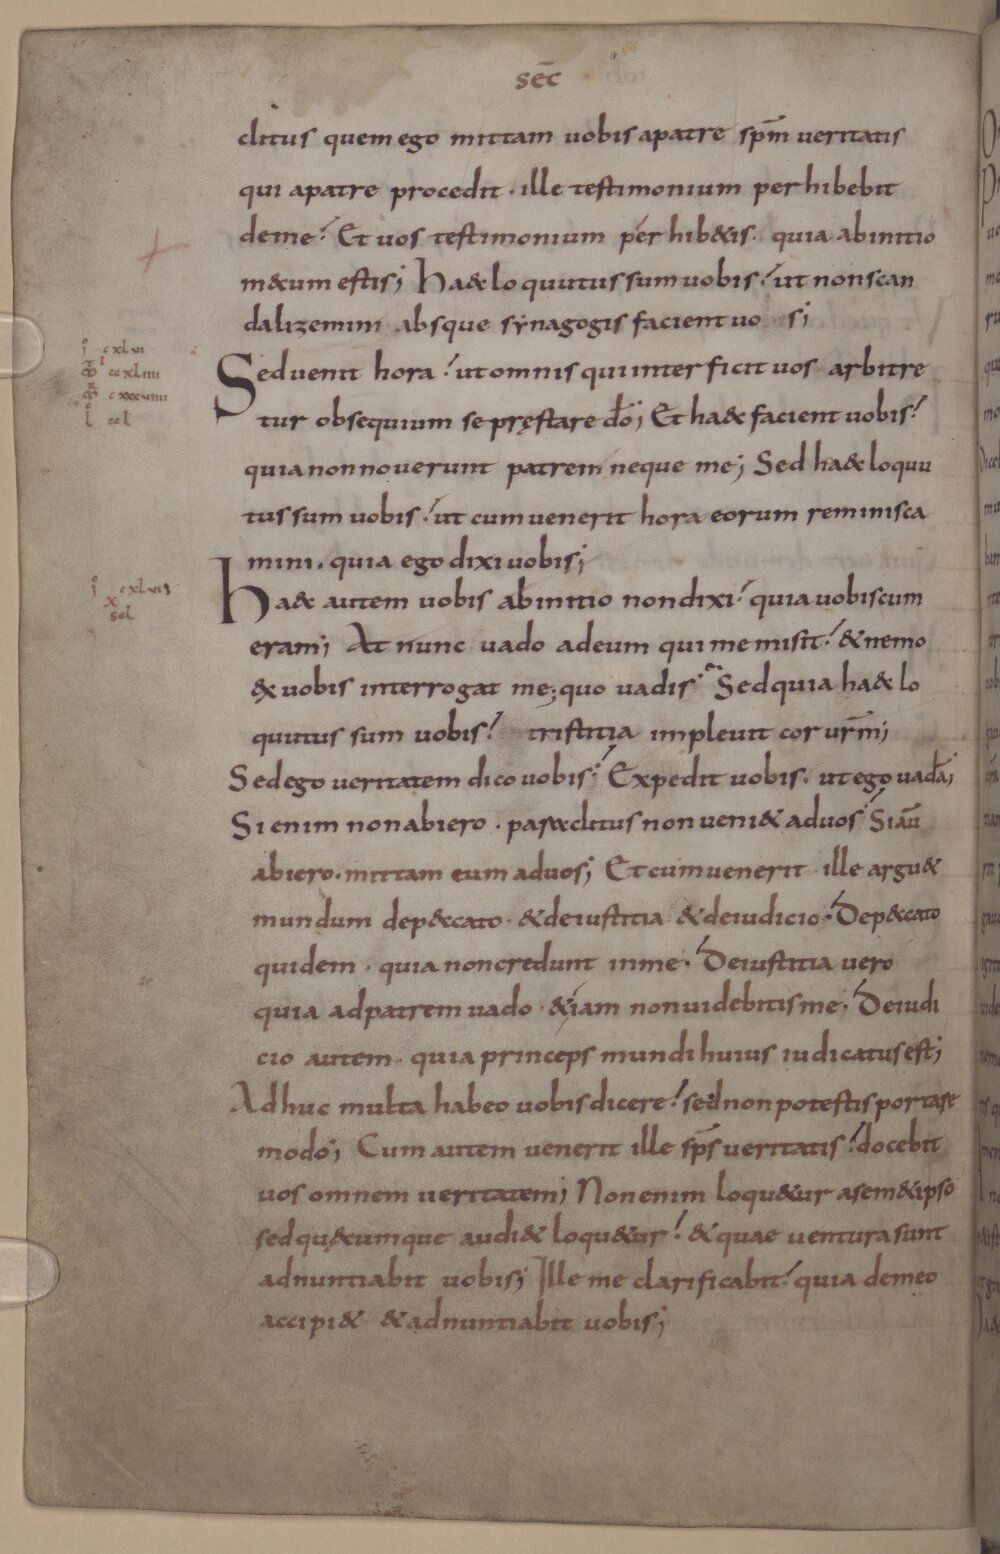 sec̄
clitus quem ego mittam uobis apatre sp̄m ueritatis
qui apatre procedit · ille testimonium perhibebit
deme! Et uos testimonium perhib&is · quia abinitio
m&cum estis; Ha& loquutus sum uobis! ut non scan
dalizemini absque synagogis facient uo s;
Sed uenit hora! ut omnis qui interficit uos arbitre
tur obsequium se pręstare dō; Et ha& facient uobis!
quia non nouerunt patrem neque me; Sed ha& loquu
tus sum uobis! ut cum uenerit hora eorum reminisca
mini · quia ego dixi uobis;
i cxlvi
cxliiii
ccl
Ha& autem uobis abinitio non dixi! quia uobiscum
eram; At nunc uado adeum qui me misit! & nemo
ex uobis interrogat me; quo uadis Sed quia ha& lo
i cxlvii
x
sol
quutus sum uobis! tristitia impleuit cor ur̄m;
Sed ego ueritatem dico uobis! Expedit uobis · ut ego uadā;
Si enim non abiero · paraclitus non ueni& aduos Si aū
abiero · mittam eum aduos; Et cum uenerit ille argu&
mundum dep&cato · & deiustitia & deiudicio · Dep&cato
quidem · quia non credunt inme · Deiustitia uero
quia adpatrem uado · & iam non uidebitis me · Deiudi
cio autem · quia princeps mundi huius iudicatus est;
Adhuc multa habeo uobis dicere! sed non potestis portare
modo; Cum autem uenerit ille sp̄s ueritatis! docebit
uos omnem ueritatem; Non enim loqu&ur asem&ipso
sed qu&cumque audi& loqu&ur! & quae uentura sunt
adnuntiabit uobis; Ille me clarificabit! quia demeo
accipi& & adnuntiabit uobis;